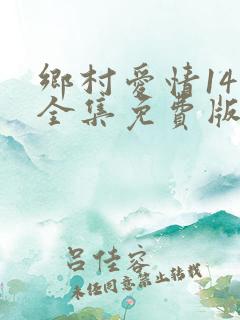 鄉村愛情14
全集免費版
呂佳容
未经同意禁止转载